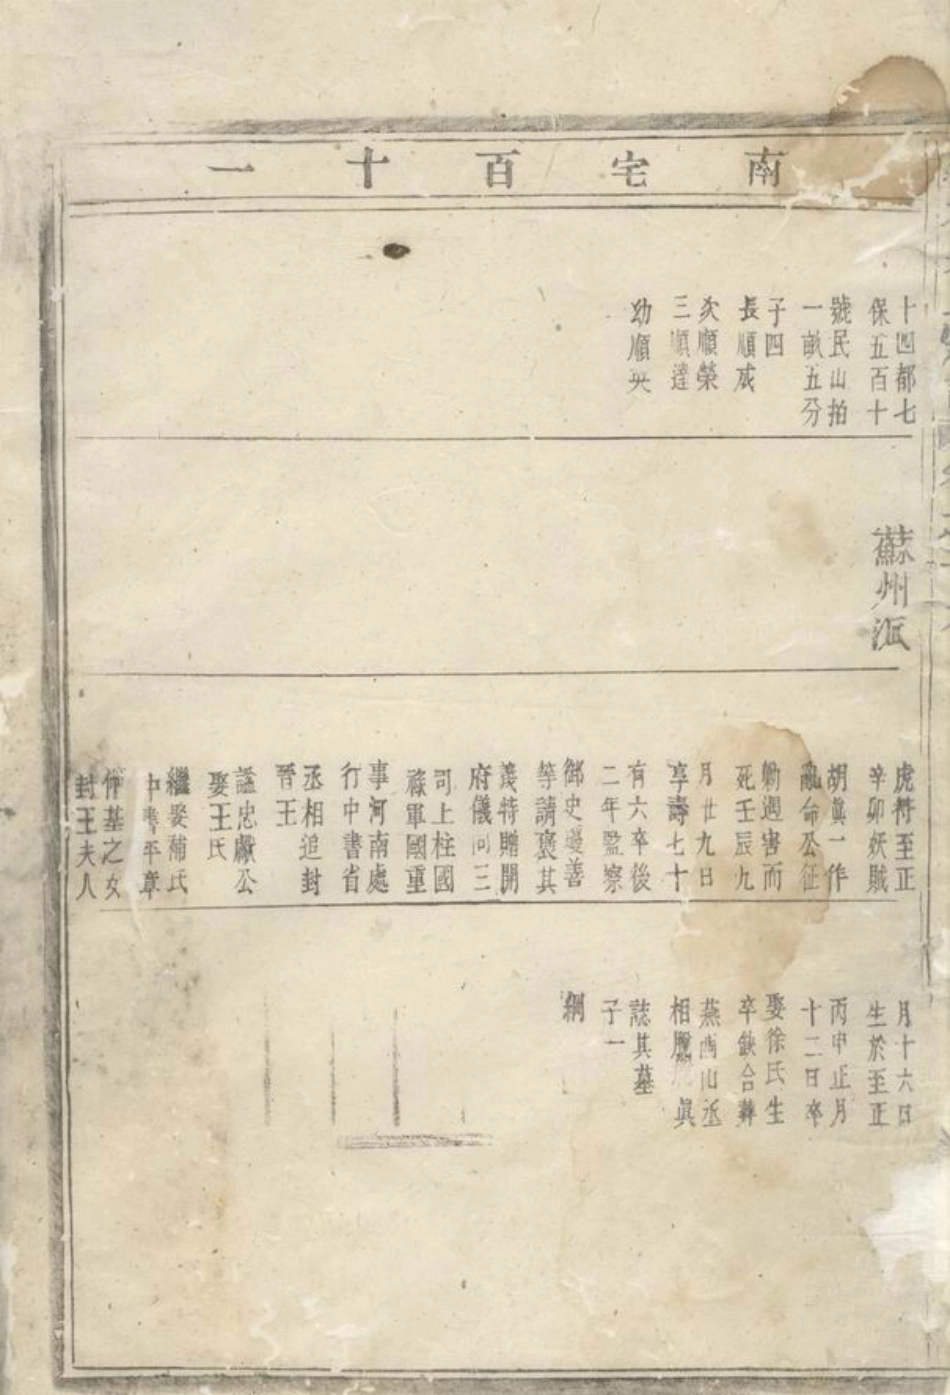 南宅百十一
十四都七
保五百十
號民山拍
一畝五分
子四
長順成
次順榮
三順達
幼順英
蘇州派
虎符至正
辛卯妖賊
胡真一作
亂命公征
勦遇害而
死壬辰九
月廿九日
享壽七十
有六卒後
二年監察
御史邊善
等請褒其
義特贈開
府儀同三
司上柱國
祿軍國重
事河南處
行中書省
丞相追封
晉王
諡忠獻公
娶王氏
繼娶蒲氏
中書平章
仲基之女
封王夫人
月十六日
生於至正
丙申正月
十二日卒
娶徐氏生
卒缺合葬
燕西山丞
相 真
誌其墓
子一
綱